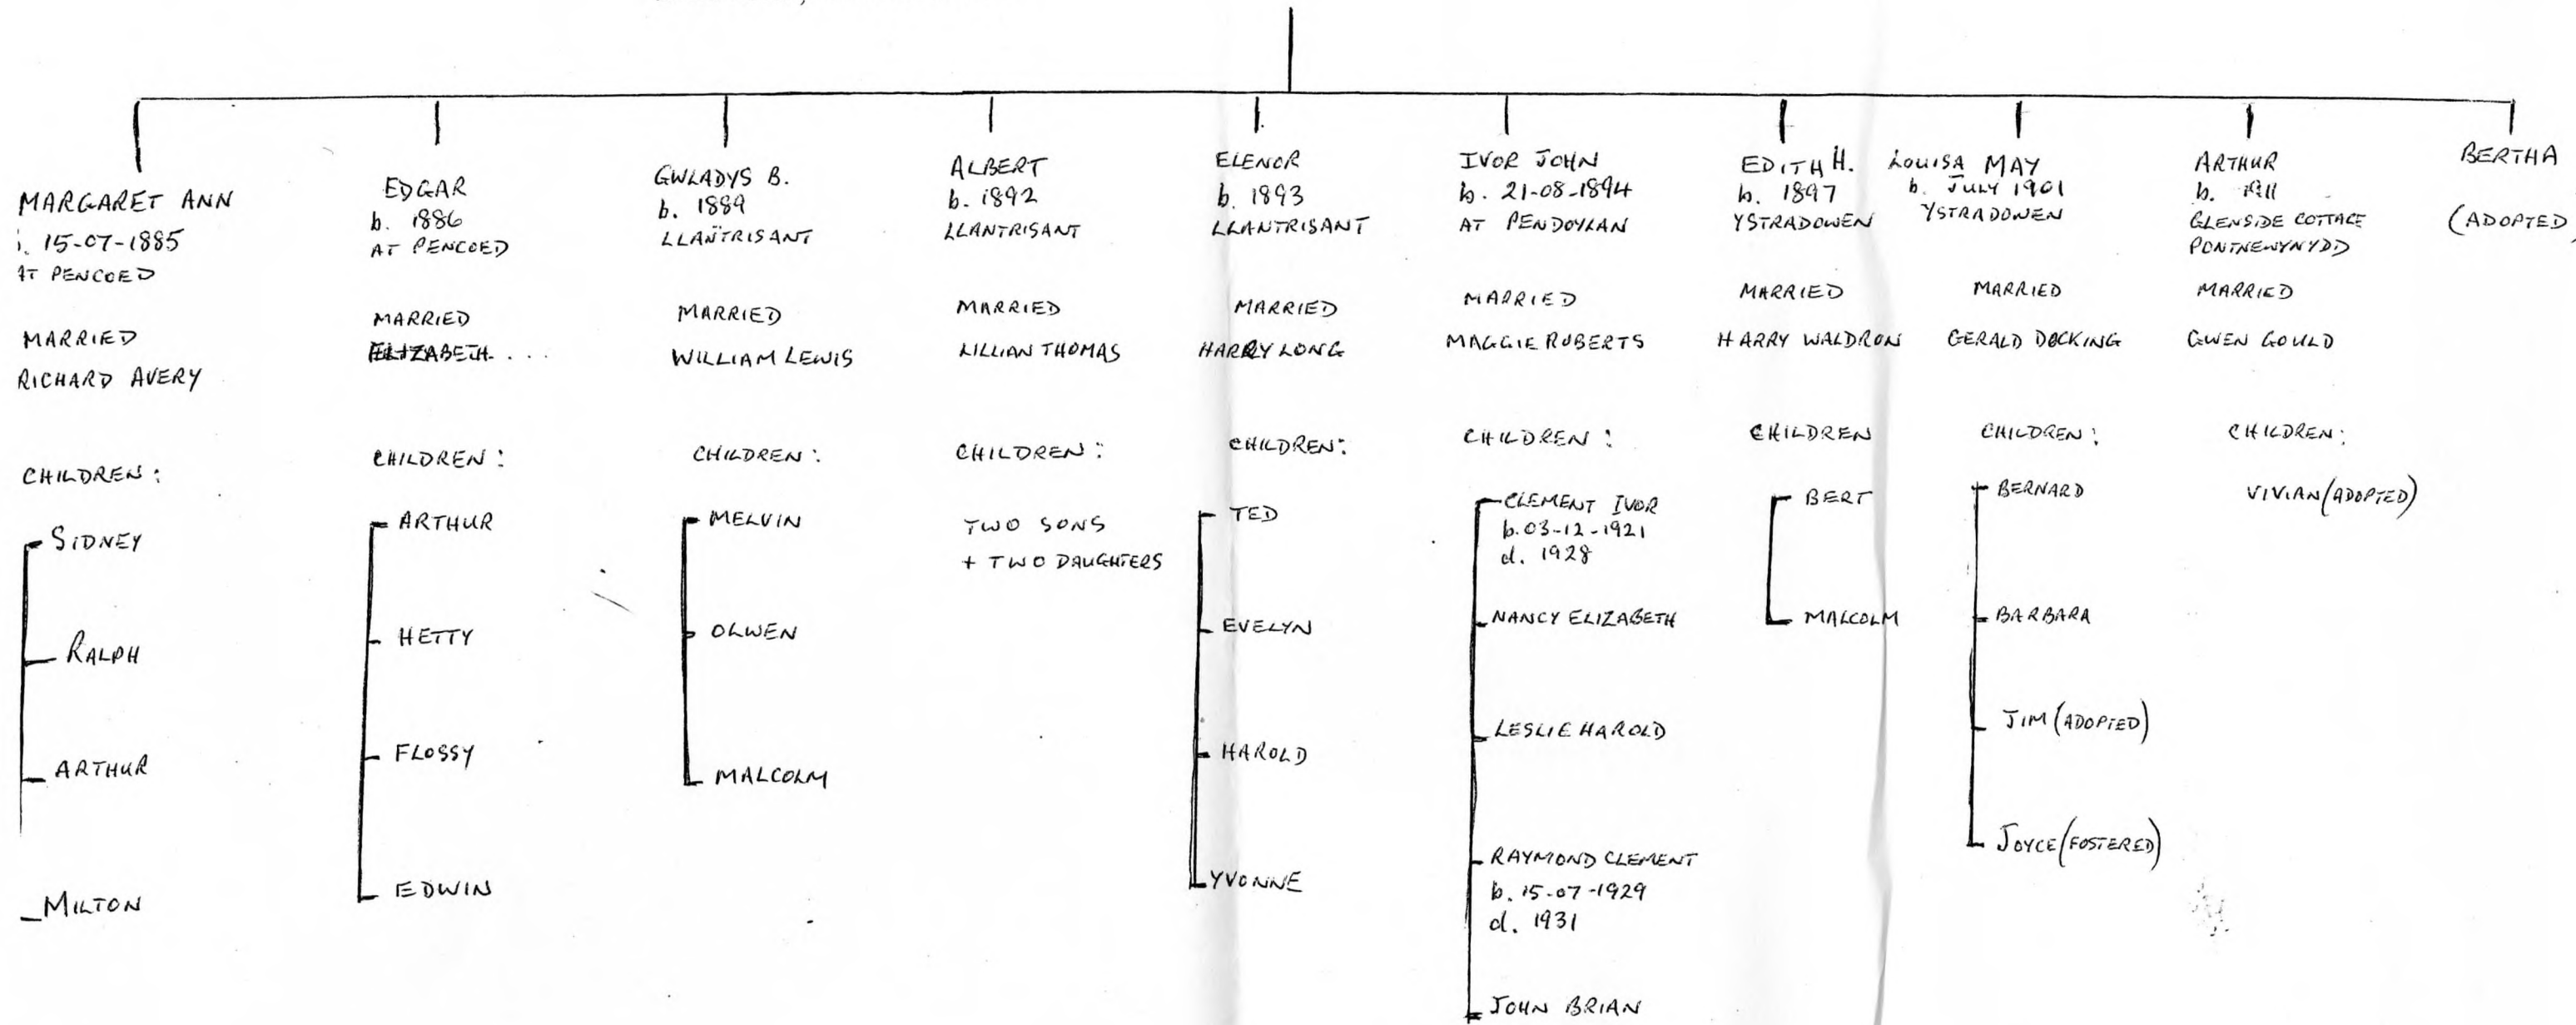 MARGARET ANN
15-07-1885
AT PENCOED
MARRIED
RICHARD AVERY
CHILDREN:
SIDNEY
RALPH
ARTHUR
MILTON
EDGAR
b. 1886
AT PENCOED
MARRIED
ELIZABETH....
CHILDREN:
ARTHUR
HETTY
FLOSSY
EDWIN
GWLADYS B.
b. 1889
LLANTRISANT
MARRIED
WILLIAM LEWIS
CHILDREN:
MELVIN
OLWEN
MALCOLM
ALBERT
b. 1892
LLANTRISANT
MARRIED
LILLIAN THOMAS
CHILDREN:
TWO SONS
+ TWO DAUGHTERS
ELENOR
b. 1893
LLANTRISANT
MARRIED
HARRY LONG
CHILDREN:
TED
EVELYN
HAROLD
YVONNE
IVOR JOHN
b. 21-08-1894
AT PENDOYLAN
MARRIED
MAGGIE ROBERTS
CHILDREN:
CLEMENT IVOR
b. 03-12-1921
d. 1928
NANCY ELIZABETH
LESLIE HAROLD
RAYMOND CLEMENT
b. 15-07-1929
d. 1931
JOHN BRIAN
EDITH H.
b. 1897
YSTRADOWEN
MARRIED
HARRY WALDRON
CHILDREN
BERT
MALCOLM
LOUISA MAY
b. JULY 1901
YSTRADOWEN
MARRIED
GERALD DOCKING
CHILDREN:
BERNARD
BARBARA
JIM (ADOPTED)
JOYCE (FOSTERED)
ARTHUR
b. 1911
GLENSIDE COTTAGE
PONTNEWYNYDD
MARRIED
GWEN GOULD
CHILDREN:
VIVIAN (ADOPTED)
BERTHA
(ADOPTED)